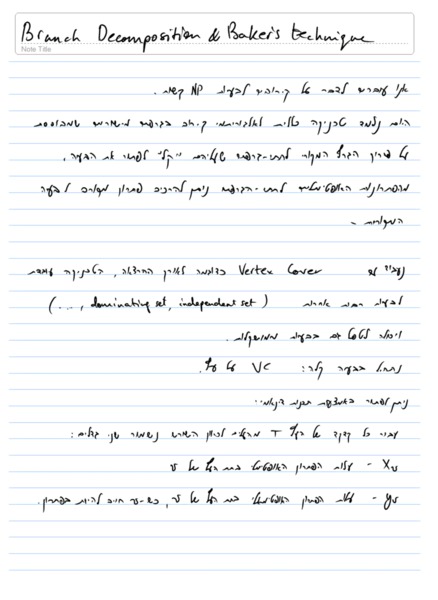 Branch Decomposition & Baker's technique
Note Title
אנו עוברים לדבר על קירובים לבעיות NP קשות.
היום נלמד טכניקה כללית לאלגוריתמי קירוב בגרפים מישוריים שמבוססת
על פירוק הגרף המקורי לתתי-גרפים שעליהם "קל" לפתור את הבעיה.
מהפתרונות האופטימליים לתתי-הגרפים ניתן להרכיב פתרון מקורב לבעיה
המקורית -
נעבוד עם Vertex Cover כדוגמה לאורך ההרצאה, הטכניקה עובדת
לבעיות רבות אחרות (..., dominating set, independent set)
ויכולה לטפל גם בבעיות ממושקלות.
נתחיל בבעיה קלה: VC על עץ.
ניתן לפתור באמצעות תכנות דינאמי:
עבור כל קדקד של העץ T מהעלים לכיוון השורש נשמור שני גדלים:
Xv - עלות הפתרון האופטימלי בתת העץ של v
yv - עלות הפתרון האופטימלי בתת העץ של v, כש-v חייב להיות בפתרון.